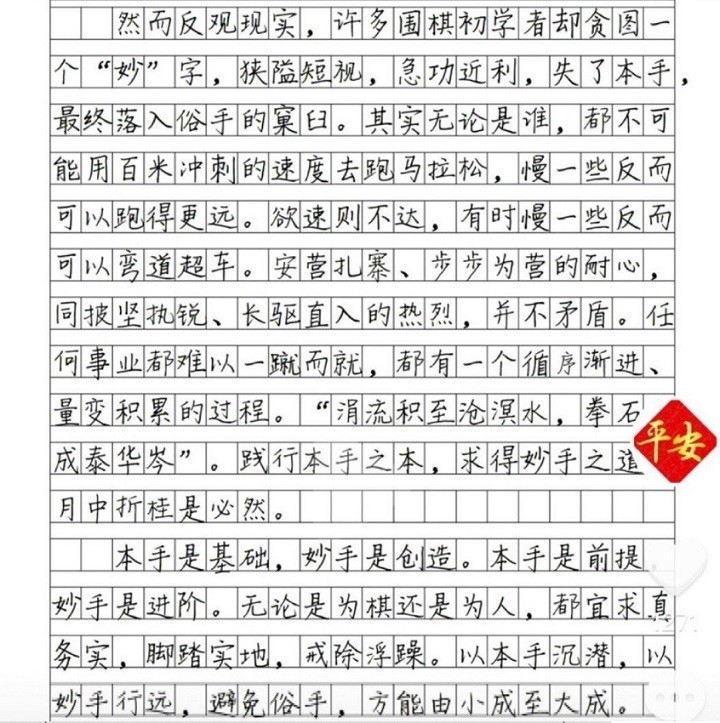 然而反观现实，许多围棋初学者却贪图一
个“妙”字，狭隘短视，急功近利，失了本手，
最终落入俗手的窠臼。其实无论是谁，都不可
能用百米冲刺的速度去跑马拉松，慢一些反而
可以跑得更远。欲速则不达，有时慢一些反而
可以弯道超车。安营扎寨、步步为营的耐心，
同披坚执锐、长驱直入的热烈，并不矛盾。任
何事业都难以一蹴而就，都有一个循序渐进、
量变积累的过程。“涓流积至沧溟水，拳石
成泰华岑”。践行本手之本，求得妙手之道
月中折桂是必然。
本手是基础，妙手是创造。本手是前提，
妙手是进阶。无论是为棋还是为人，都宜求真
务实，脚踏实地，戒除浮躁。以本手沉潜，以
妙手行远，避免俗手，方能由小成至大成。
平安
1271